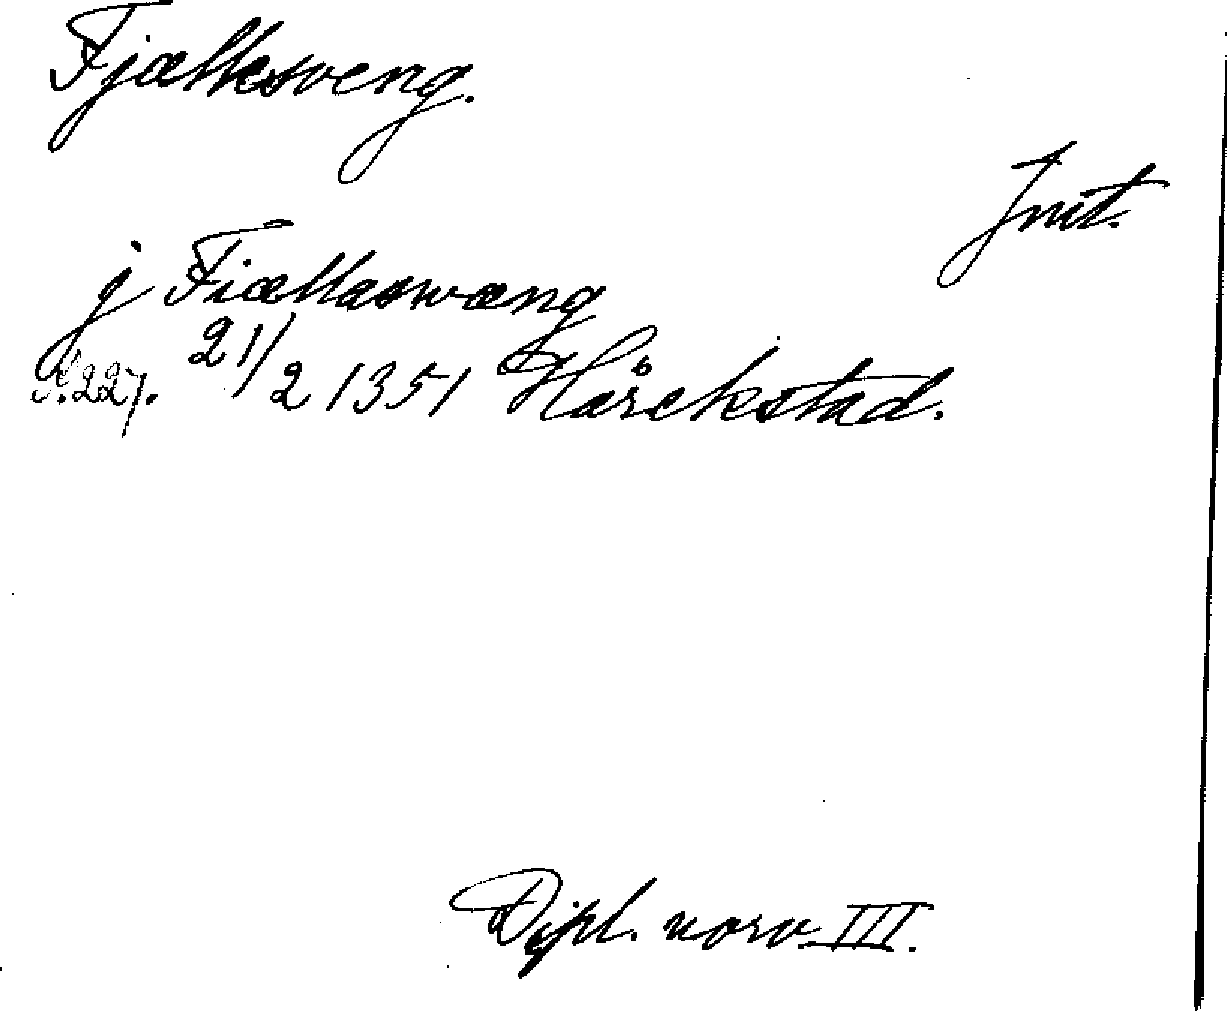 Fjælleveng.
Jnt.
j Fiællaswæng
S. 227. 21/2 1351 Hårekstad.
Dipl. norv. III.